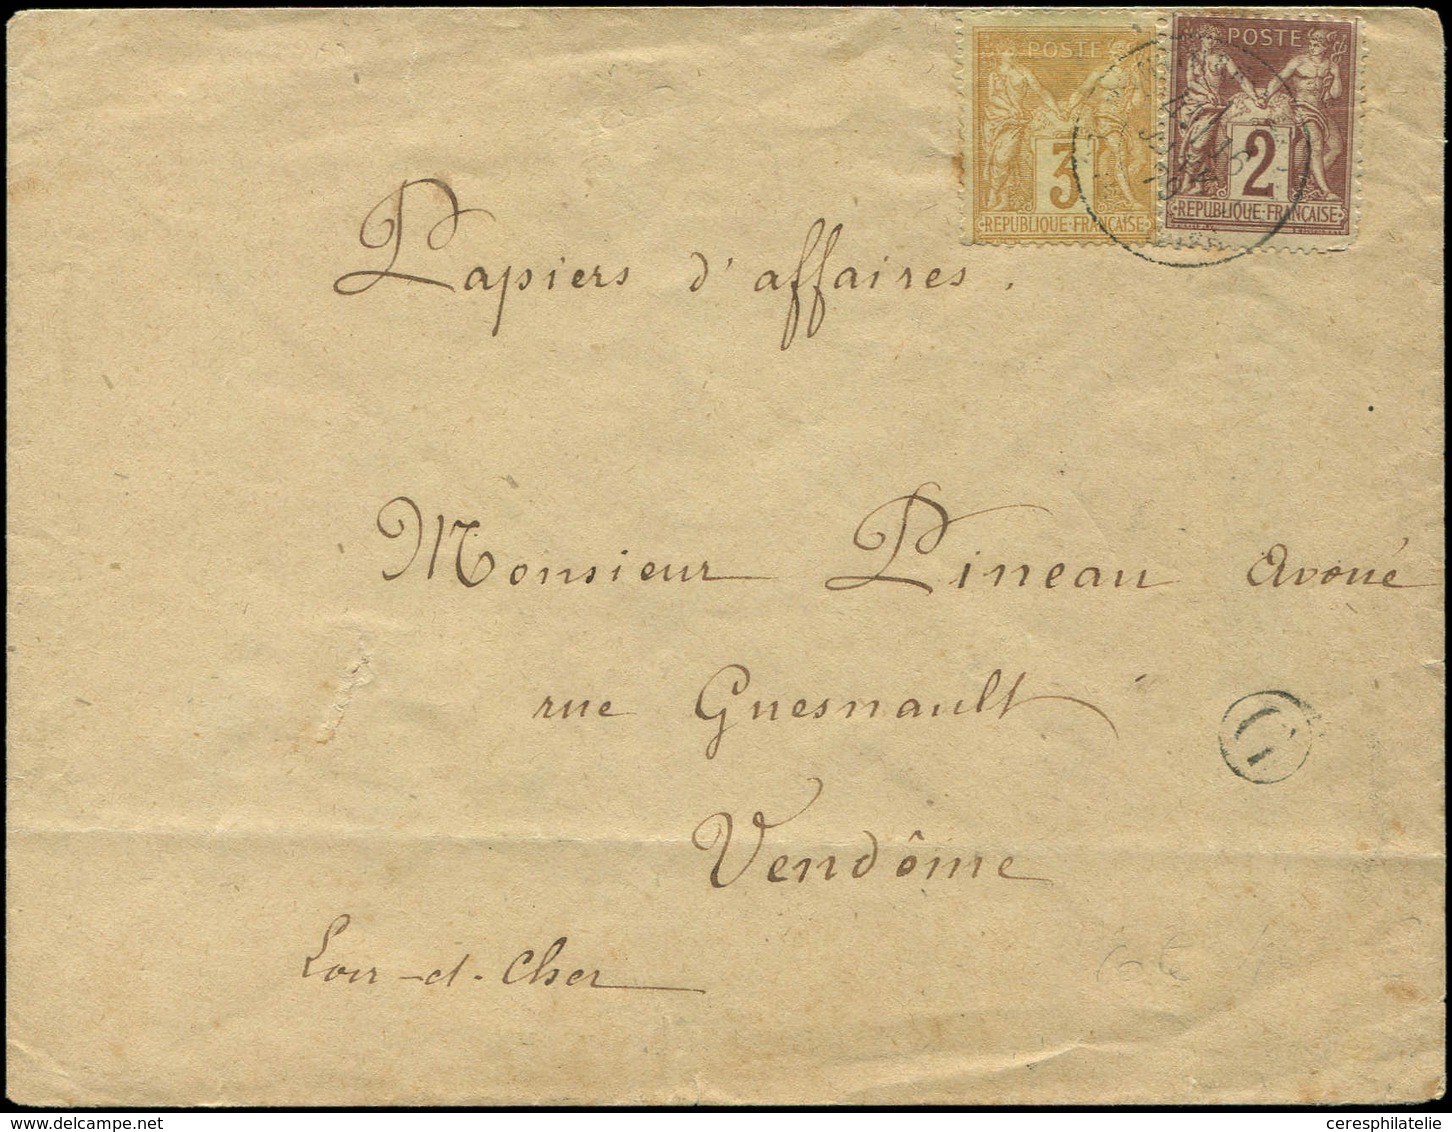 POSTE
3
REPUBLIQUE-FRANÇAISE
POSTE
2
REPUBLIQUE-FRANÇAISE
Papiers d'affaires.
Monsieur Pineau Avoué
rue Guesnault
G
Vendôme
Loir-et-Cher
delcampe.net
ceresphilatelie